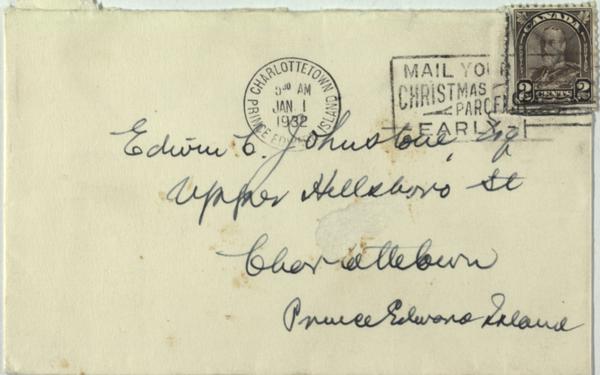 CANADA
2 CENTS 2
CHARLOTTETOWN
5³⁰ AM
JAN 1
1932
PRINCE EDWARD ISLAND
MAIL YOUR
CHRISTMAS
PARCELS
EARLY
Edwin C. Johnstone, Esq
Upper Hillsboro St
Charlottetown
Prince Edward Island